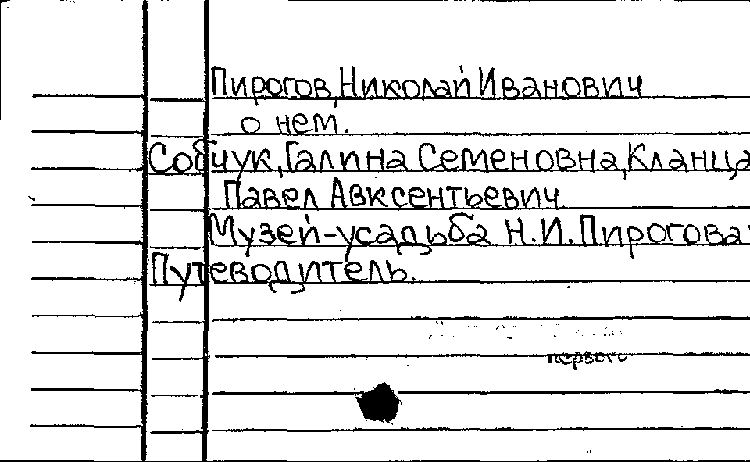 Пирогов, Николай Иванович
о нем.
Собчук, Галина Семеновна, Кланца
Павел Авксентьевич
Музей-усадьба Н.И. Пирогова
Путеводитель.
первого